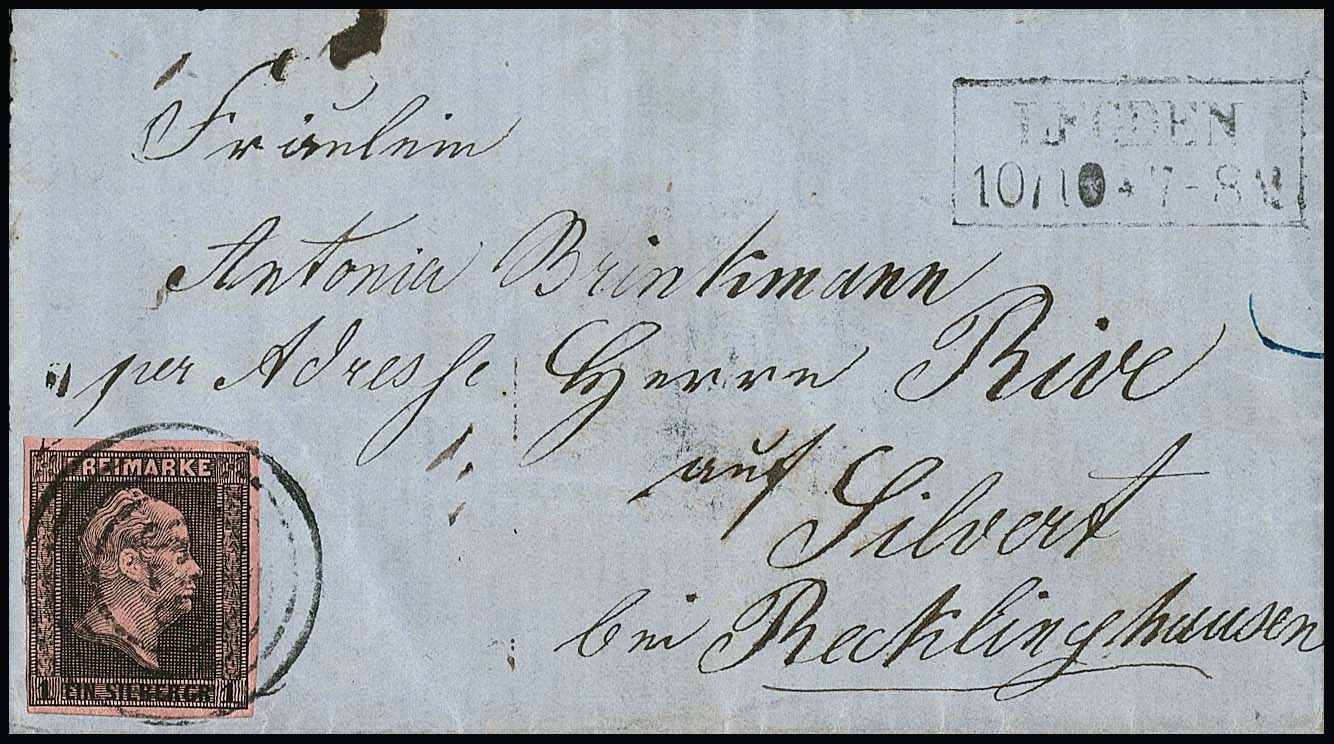 Fräulein
Antonia Brinkmann
per Adresse Herrn Rive
auf
Silvert
bei Recklinghausen
LEGDEN
10/10 * 7-8 N
FREIMARKE
1 EIN SILBERGR. 1